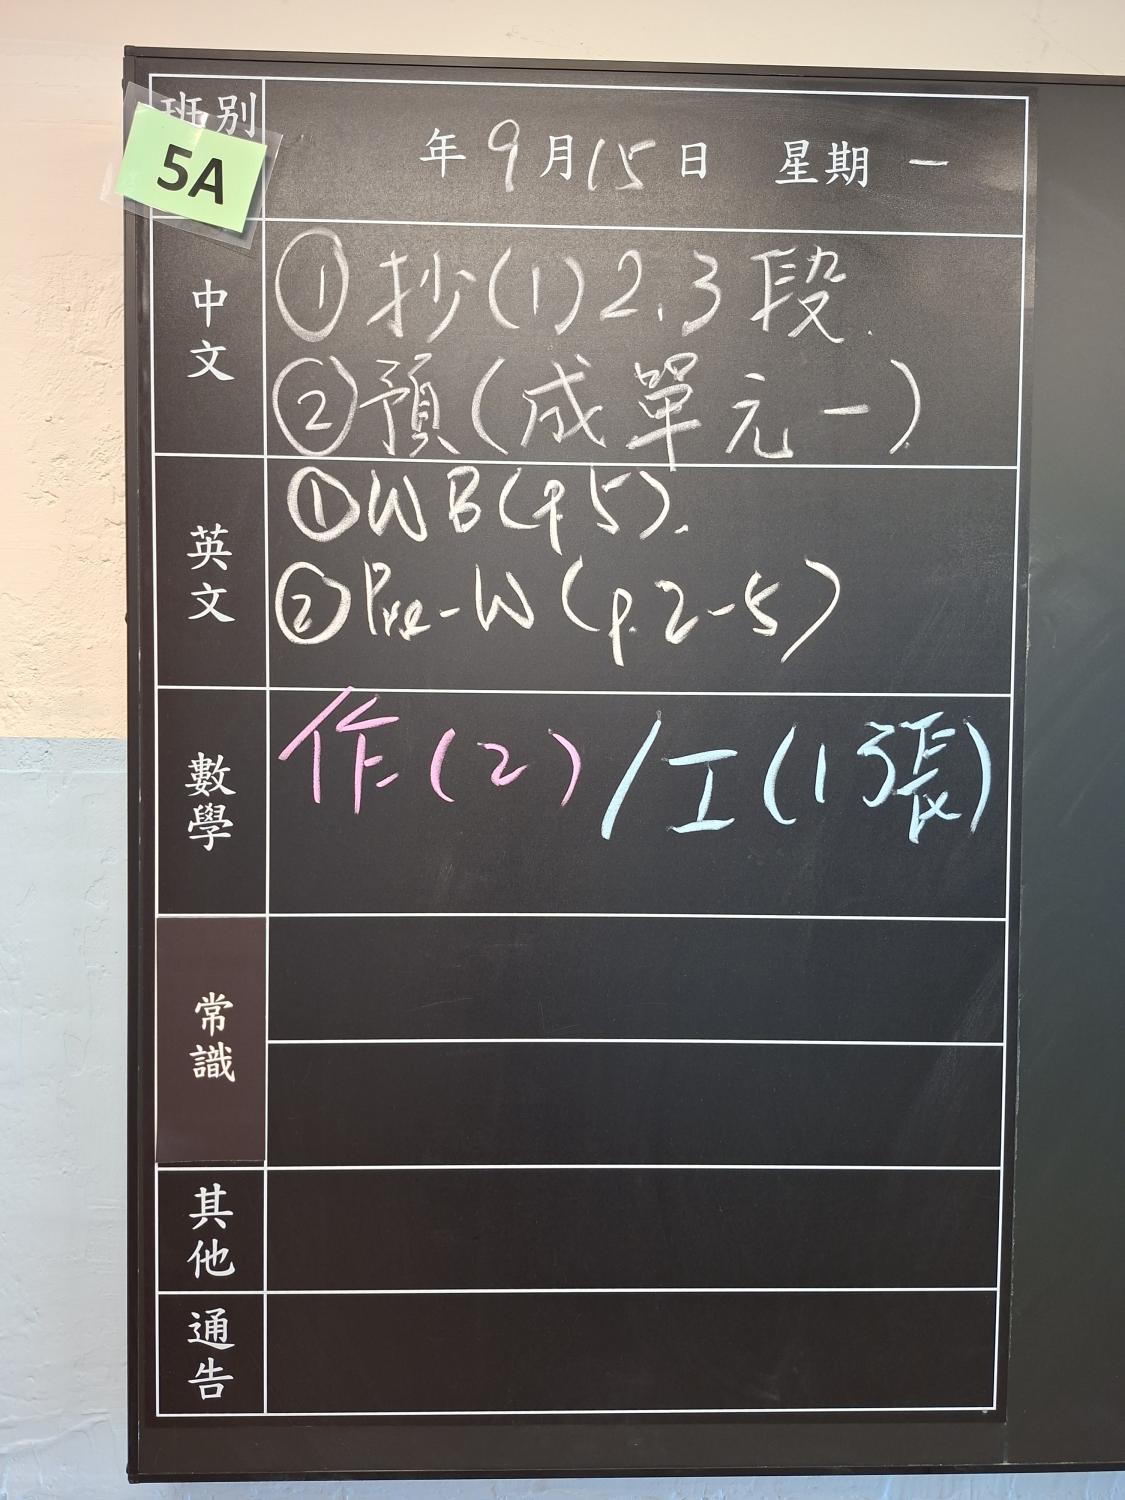 班別
5A
年9月15日 星期一
中文
①抄(1)2.3段.
②預(成單元一)
英文
①WB(p5).
②Pre-W(p.2-5)
數學
作(2)/工(13張)
常識
其他
通告